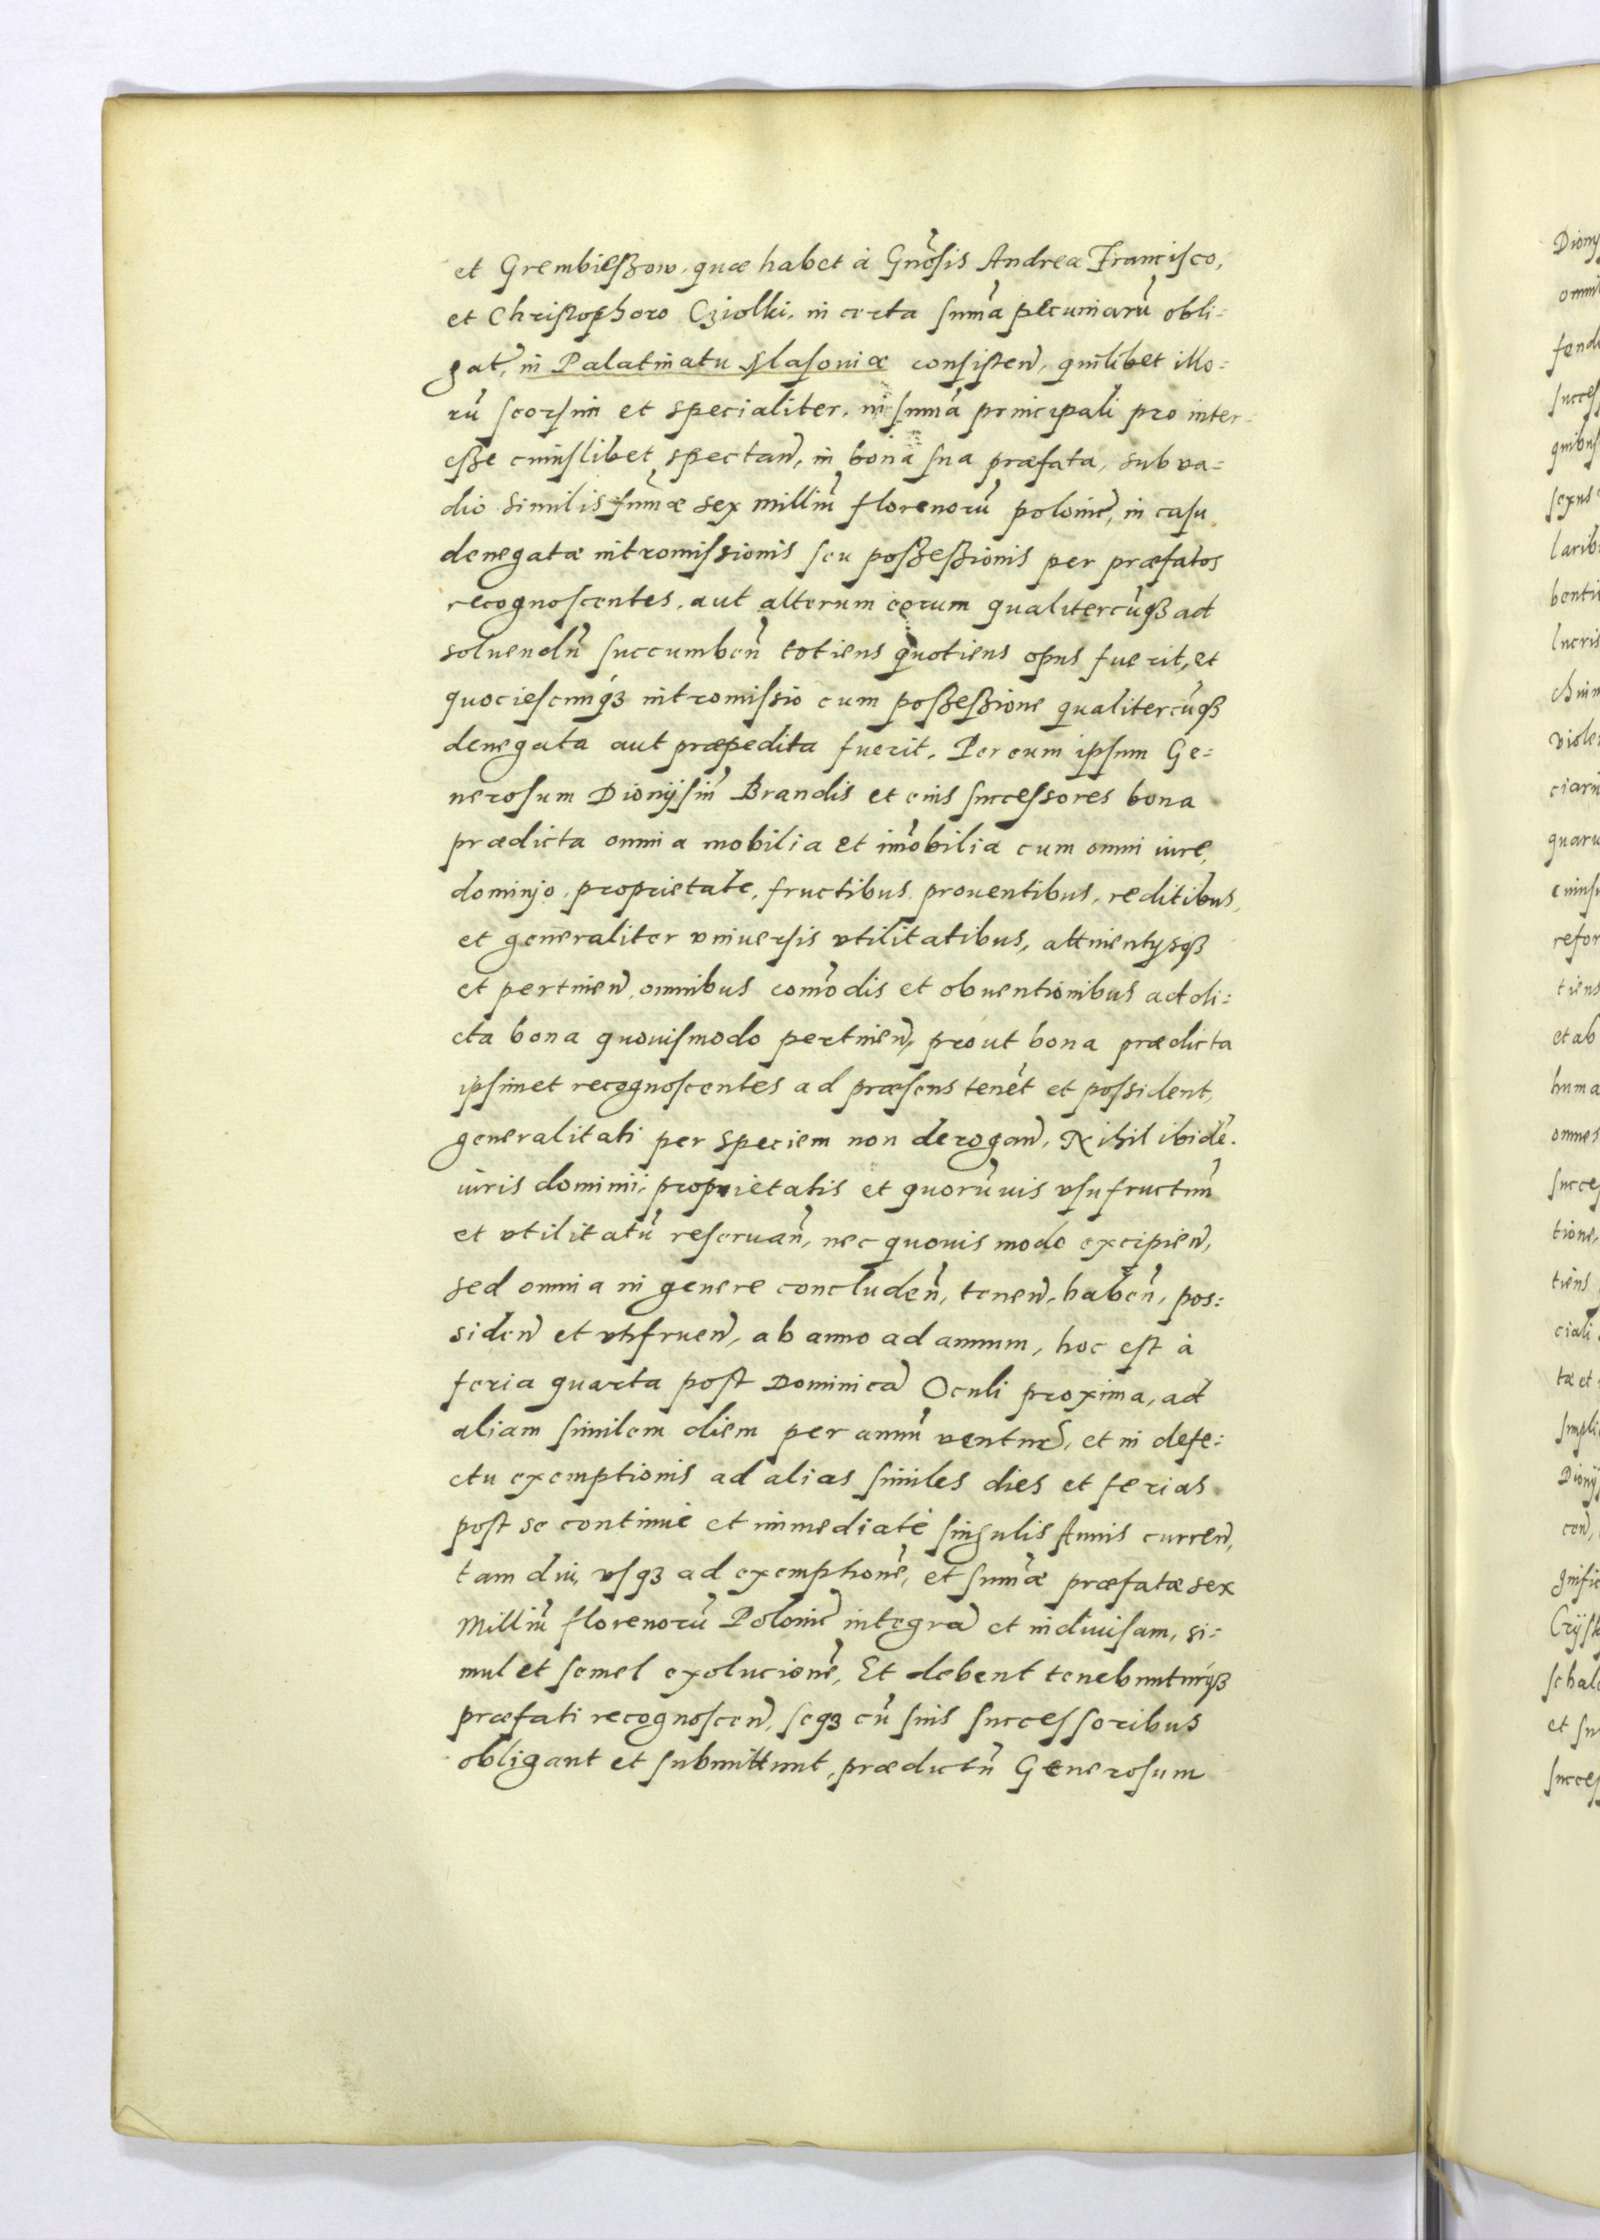 et Grembieſzow, quæ habet à Gnõsis Andrea Francisco,
et Chriſtophoro Cziolki, in certa sum̃a pecuniarũ obli:
gat̃, in Palatinatu Maſoviæ conſiſteñ, quilibet illo:
rũ ſeorſim et specialiter, in sum̃a principali pro inter:
eſze cuiuſlibet spectañ, in bona sua præfata, sub va:
dio similis sum̃æ sex milliũ florenorũ polonic̃, in caſu
denegatæ intromiſsionis ſeu poſzeſzionis per præfatos
recognoſcentes, aut alterum eorum qualitercũqȝ ad
soluendũ ſuccumbeñ totiens quotiens opus fuerit, et
quocieſcunqȝ intromiſsio cum poſzeſzione qualitercũqȝ
denegata aut præpedita fuerit. Per eum ipſum Ge:
nerosum Dionÿſiũ Brandis et eius ſucceſsores bona
prædicta omnia mobilia et im̃obilia cum omni iure,
dominio, proprietate, fructibus, prouentibus, reditibus,
et generaliter vniuerſis vtilitatibus, attinentÿsqȝ
et pertineñ, omnibus com̃odis et obuentionibus ad di:
cta bona quouiſmodo pertineñ, prout bona prædicta
ipſimet recognoſcentes ad præſens tenẽt et poſsident,
generalitati per speciem non derogañ, Nihil ibidẽ.
iuris dominii, proprietatis et quorũuis vſufructuũ
et vtilitatũ reſeruañ, nec quouis modo excipieñ,
sed omnia in genere concludeñ, teneñ, habeñ, pos:
sideñ et vtifrueñ, ab anno ad annum, hoc eſt à
feria quarta poſt Dominicã Oculi proxima, ad
aliam ſimilem diem per annũ ventur̃, et in defe:
ctu exemptionis ad alias ſimiles dies et ferias
poſt se continuè et immediatè ſingulis Annis curreñ,
tam diu, vſqȝ ad exemptionẽ, et sum̃æ præfatæ sex
Milliũ florenorũ Polonic̃ integrã et indiuiſam, si:
mul et ſemel exolucionẽ, Et debent tenebunturqȝ
præfati recognoſceñ, ſeqȝ cũ ſuis ſucceſſoribus
obligant et ſubmittunt, prædictũ Generoſum